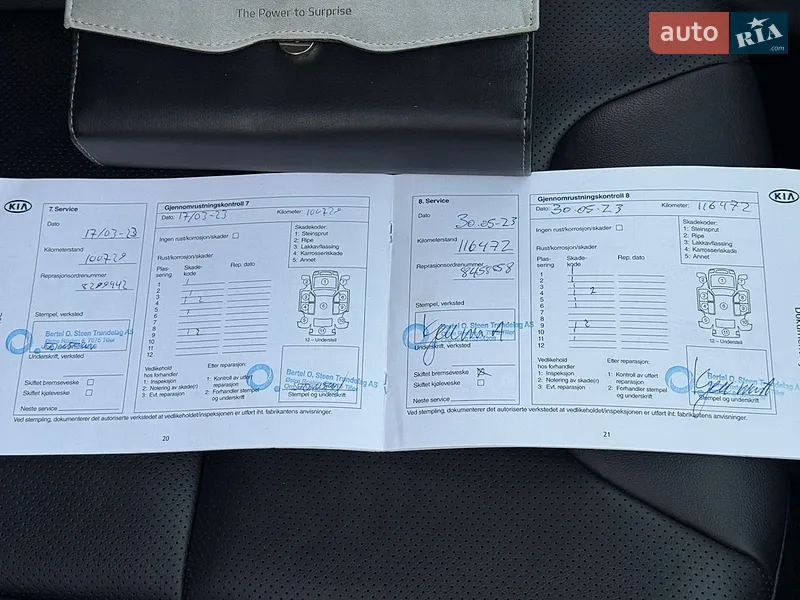 The Power to Surprise
auto RIA .com
KIA
7. Service
Dato
17/03-23
Kilometerstand
100728
Reprasjonsordrenummer
8289942
Stempel, verksted
Bertel O. Steen Trøndelag AS
7075 Tiller
Underskrift, verksted
Skiftet bremsevæske
Skiftet kjølevæske
Neste service
Gjennomrustningskontroll 7
Dato: 17/03-23 Kilometer: 100728
Ingen rust/korrosjon/skader
Skadekoder:
1: Steinsprut
2: Ripe
3: Lakkavflassing
4: Karrosseriskade
5: Annet
Rust/korrosjon/skader:
Plas-sering Skade-kode Rep. dato
1
2
3
4 2
5
6
7
8
9 2
10
11
12
12 – Understell
Vedlikehold
hos forhandler
1: Inspeksjon
2: Notering av skade(r)
3: Evt. reparasjon
Etter reparasjon:
1: Kontroll av utført
reparasjon
2: Forhandler stempel
og underskrift
Bertel O. Steen Trøndelag AS
Stempel og underskrift
Ved stempling, dokumenterer det autoriserte verkstedet at vedlikeholdet/inspeksjonen er utført iht. fabrikantens anvisninger.
20
8. Service
Dato
30.05-23
Kilometerstand
116472
Reprasjonsordrenummer
8458558
Stempel, verksted
Underskrift, verksted
Skiftet bremsevæske x
Skiftet kjølevæske
Neste service
Gjennomrustningskontroll 8
Dato: 30.05-23 Kilometer: 116472
Ingen rust/korrosjon/skader
Skadekoder:
1: Steinsprut
2: Ripe
3: Lakkavflassing
4: Karrosseriskade
5: Annet
Rust/korrosjon/skader:
Plas-sering Skade-kode Rep. dato
1
2
3
4 2
5
6
7
8
9 2
10
11
12
12 – Understell
Vedlikehold
hos forhandler
1: Inspeksjon
2: Notering av skade(r)
3: Evt. reparasjon
Etter reparasjon:
1: Kontroll av utført
reparasjon
2: Forhandler stempel
og underskrift
Stempel og underskrift
Ved stempling, dokumenterer det autoriserte verkstedet at vedlikeholdet/inspeksjonen er utført iht. fabrikantens anvisninger.
21
KIA